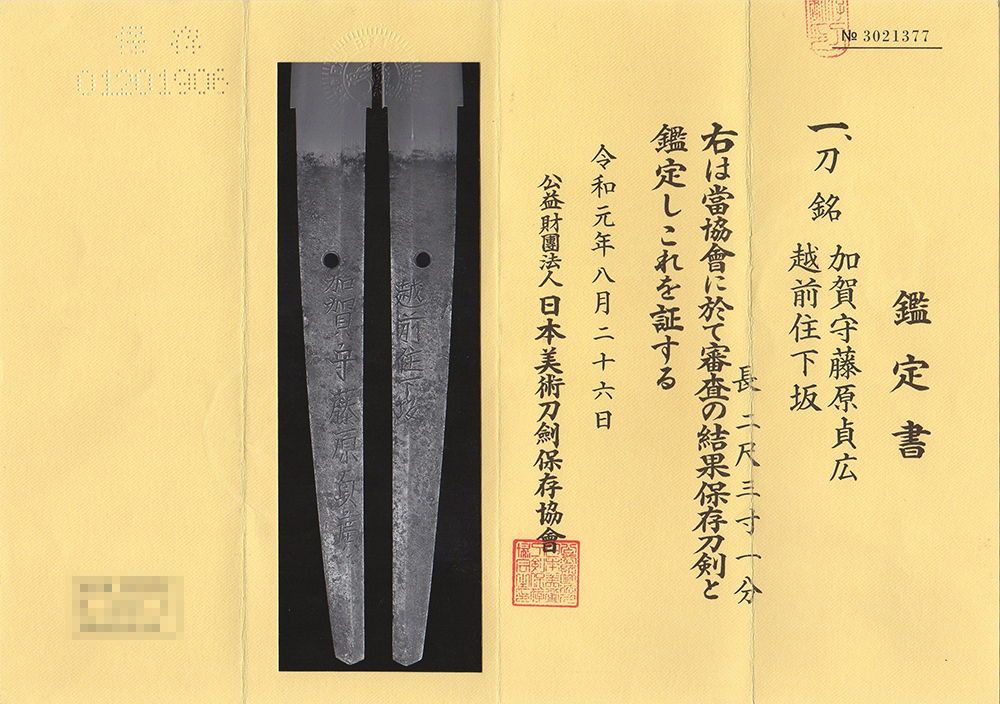 № 3021377
鑑定書
一、刀 銘 加賀守藤原貞広
越前住下坂
長 二尺三寸一分
右は當協會に於て審査の結果保存刀剣と
鑑定しこれを証する
令和元年八月二十六日
公益財團法人日本美術刀劍保存協會
越前住下坂
加賀守藤原貞廣
保存
01201906